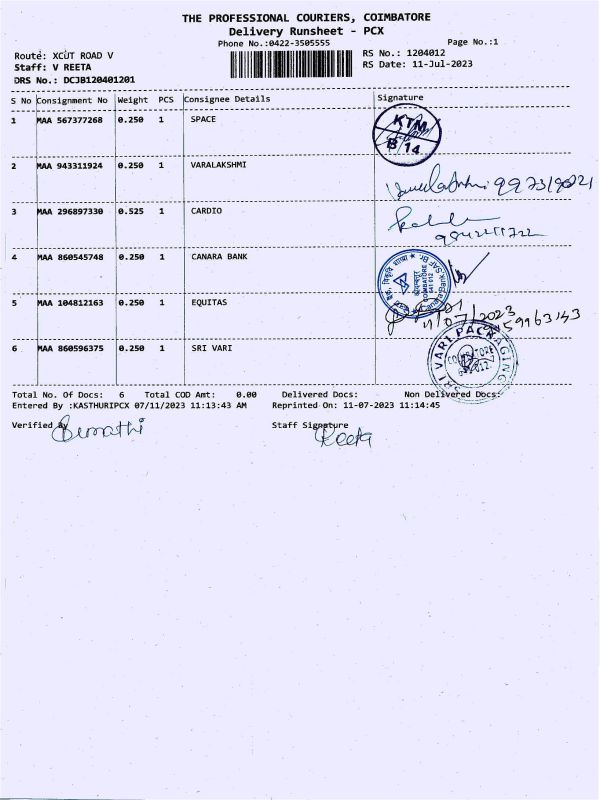 THE PROFESSIONAL COURIERS, COIMBATORE
Delivery Runsheet - PCX
Phone No.:0422-3505555
Page No.:1
Route: XCUT ROAD V
RS No.: 1204012
Staff: V REETA
RS Date: 11-Jul-2023
DRS No.: DCJB120401201
S No Consignment No Weight PCS Consignee Details Signature
1 MAA 567377268 0.250 1 SPACE
KTM
B/14
2 MAA 943311924 0.250 1 VARALAKSHMI
3 MAA 296897330 0.525 1 CARDIO
4 MAA 860545748 0.250 1 CANARA BANK
COIMBATORE
641 012
5 MAA 104812163 0.250 1 EQUITAS
11/07/2023
6 MAA 860596375 0.250 1 SRI VARI
SRI VARI PACKAGING
Total No. Of Docs: 6 Total COD Amt: 0.00 Delivered Docs: Non Delivered Docs:
Entered By :KASTHURIPCX 07/11/2023 11:13:43 AM Reprinted On: 11-07-2023 11:14:45
Verified By Staff Signature
Reeta